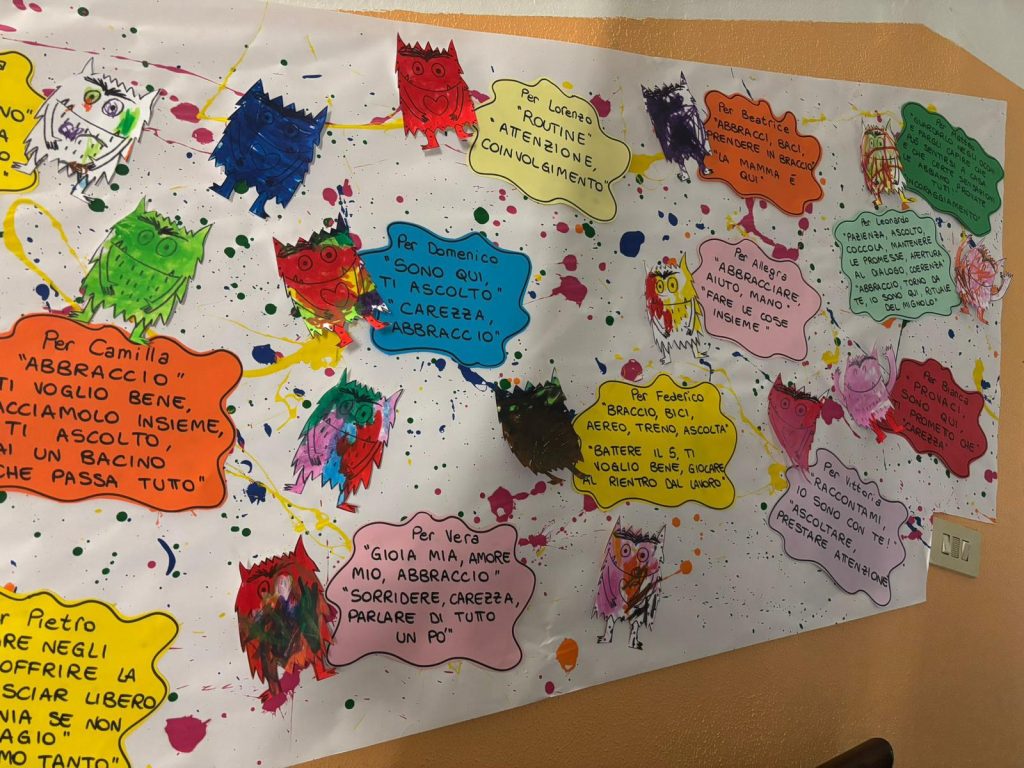 Per Lorenzo
"ROUTINE"
"ATTENZIONE,
COINVOLGIMENTO"
Per Beatrice
"ABBRACCI, BACI,
PRENDERE IN BRACCIO"
"LA MAMMA È
QUI"
INCORAGGIAMENTO"
Per Domenico
"SONO QUI,
TI ASCOLTO"
"CAREZZA,
ABBRACCIO"
Per Allegra
"ABBRACCIARE,
AIUTO, MANO"
"FARE LE COSE
INSIEME"
Per Leonardo
"PAZIENZA, ASCOLTO,
COCCOLA, MANTENERE
LE PROMESSE, APERTURA
AL DIALOGO, COERENZA"
"ABBRACCIO, TORNO DA
TE, IO SONO QUI, RITUALE
DEL MIGNOLO"
Per Camilla
"ABBRACCIO"
TI VOGLIO BENE,
FACCIAMOLO INSIEME,
TI ASCOLTO,
UN BACINO
CHE PASSA TUTTO"
Per Federico
"BRACCIO, BICI,
AEREO, TRENO, ASCOLTA"
"BATTERE IL 5, TI
VOGLIO BENE, GIOCARE
AL RIENTRO DAL LAVORO"
Per Bianca
"PROVACI,
SONO QUI,
TI PROMETTO CHE"
"CAREZZA"
Per Vittoria
"RACCONTAMI,
IO SONO CON TE!"
"ASCOLTARE,
PRESTARE ATTENZIONE"
Per Vera
"GIOIA MIA, AMORE
MIO, ABBRACCIO"
"SORRIDERE, CAREZZA,
PARLARE DI TUTTO
UN PO'"
Pietro
NEGLI
OFFRIRE LA
LIBERO
SE NON
TANTO"